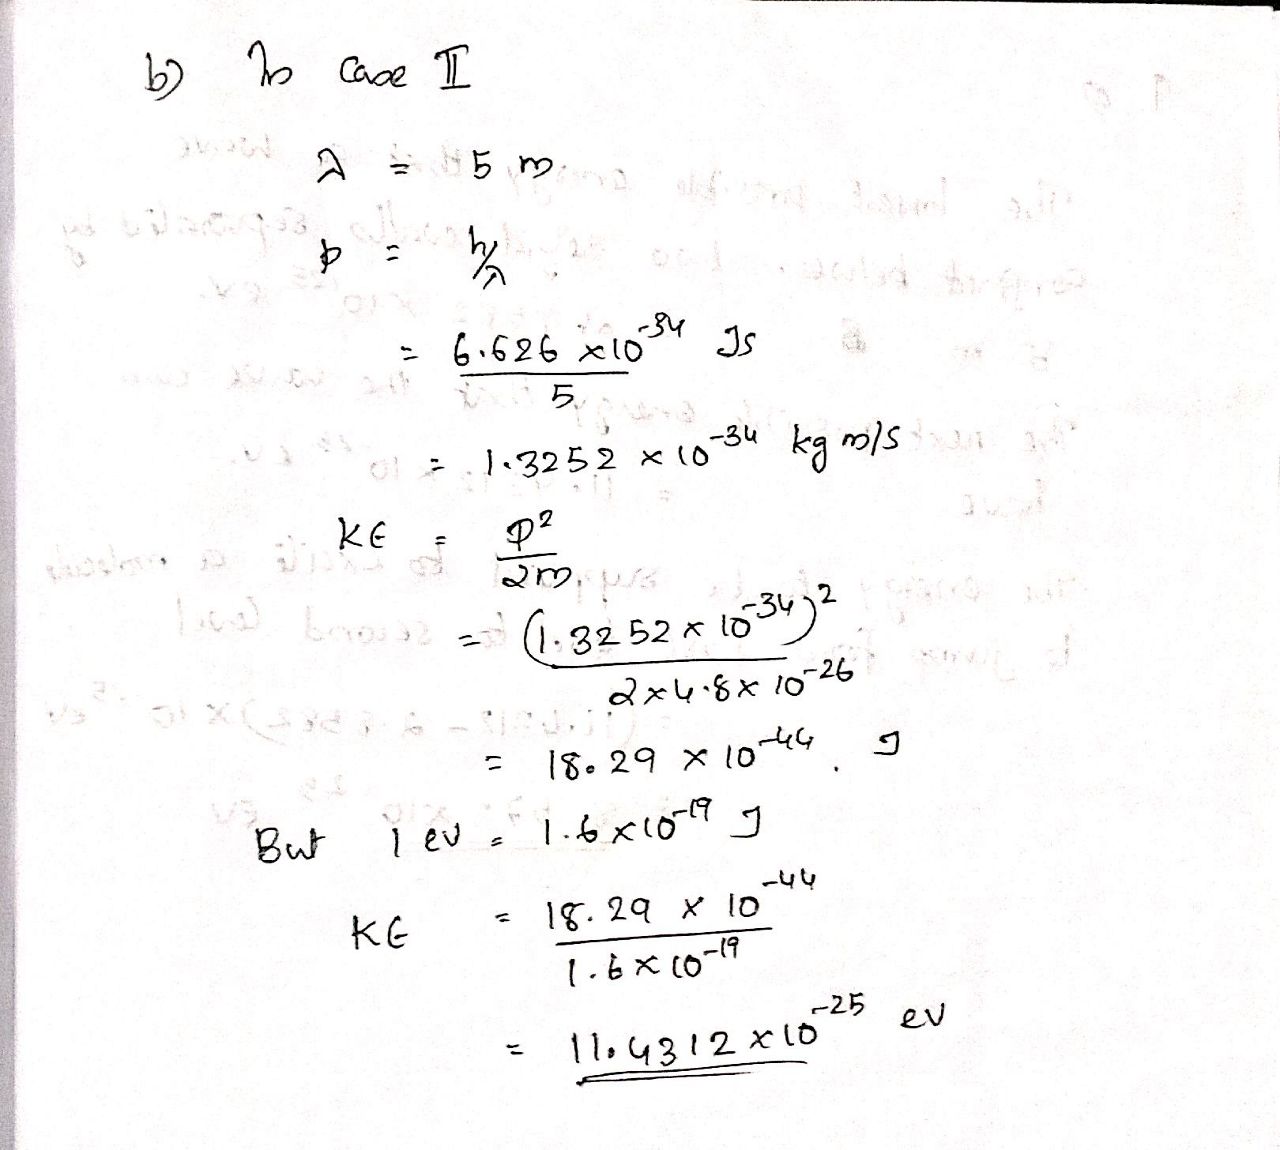 b) In Case II
λ = 5 m
p = h/λ
= 6.626 × 10^-34 Js / 5
= 1.3252 × 10^-34 kg m/s
KE = p² / 2m
= (1.3252 × 10^-34)² / 2×4.8×10^-26
= 18.29 × 10^-44 J
But 1 ev = 1.6×10^-19 J
KE = 18.29 × 10^-44 / 1.6×10^-19
= 11.4312 × 10^-25 ev